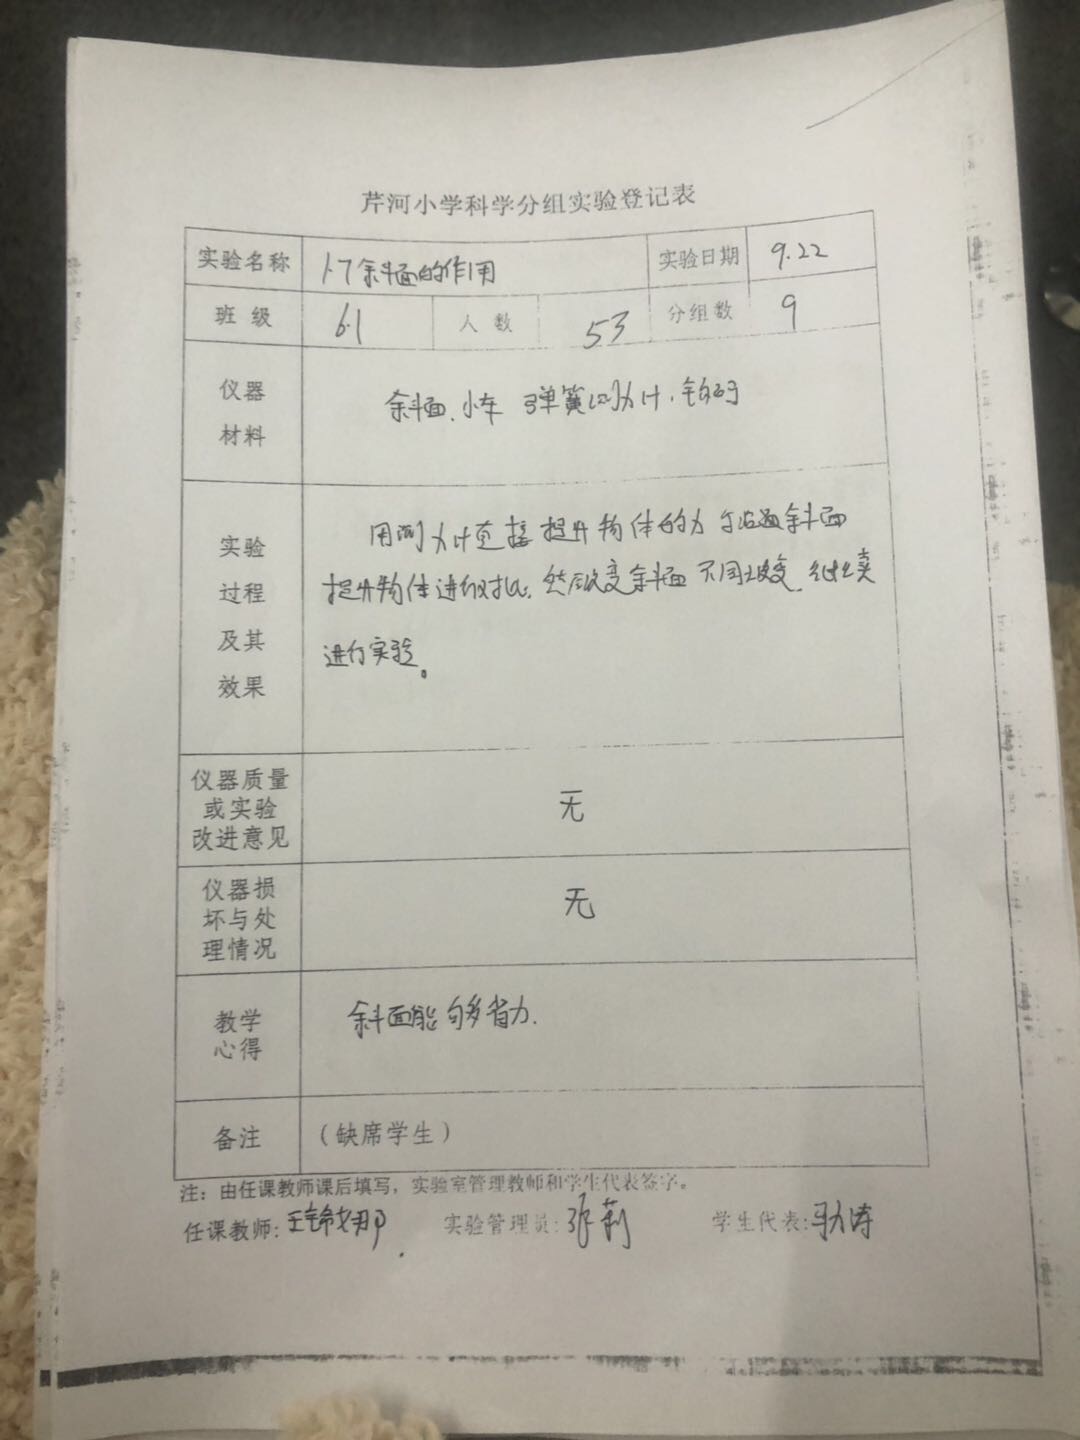 芹河小学科学分组实验登记表
实验名称 1.7斜面的作用 实验日期 9.22
班级 6.1 人数 53 分组数 9
仪器
材料
斜面、小车 弹簧测力计、钩码
实验
过程
及其
效果
用测力计直接提升物体的力 与沿着斜面
提升物体进行对比。然后改变斜面 不同坡度、继续
进行实验。
仪器质量
或实验
改进意见
无
仪器损
坏与处
理情况
无
教学
心得
斜面能够省力.
备注 (缺席学生)
注：由任课教师课后填写，实验室管理教师和学生代表签字。
任课教师: 王锦娜 实验管理员: 张莉 学生代表: 马涛